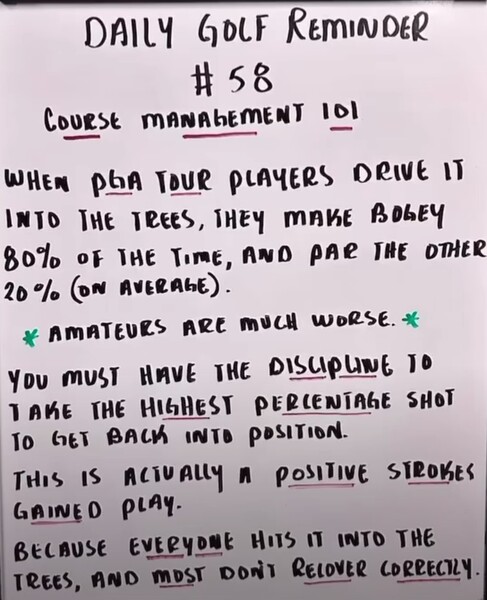 DAILY GOLF REMINDER
# 58
COURSE MANAGEMENT 101
WHEN PGA TOUR PLAYERS DRIVE IT
INTO THE TREES, THEY MAKE BOGEY
80% OF THE TIME, AND PAR THE OTHER
20% (ON AVERAGE).
* AMATEURS ARE MUCH WORSE. *
YOU MUST HAVE THE DISCIPLINE TO
TAKE THE HIGHEST PERCENTAGE SHOT
TO GET BACK INTO POSITION.
THIS IS ACTUALLY A POSITIVE STROKES
GAINED PLAY.
BECAUSE EVERYONE HITS IT INTO THE
TREES, AND MOST DON'T RECOVER CORRECTLY.